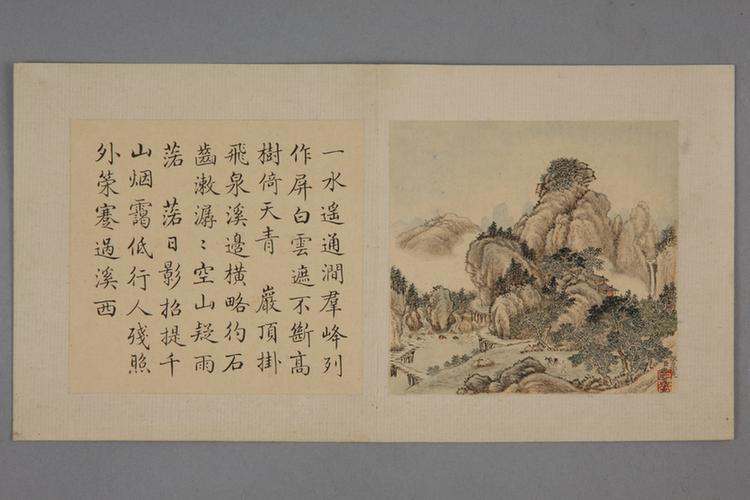 一水遥通澗羣峰列
作屏白雲遮不斷高
樹倚天青 巖頂掛
飛泉溪邊橫略彴石
齒漱潺〻空山疑雨
落 落日影招提千
山烟靄低行人殘照
外策蹇過溪西